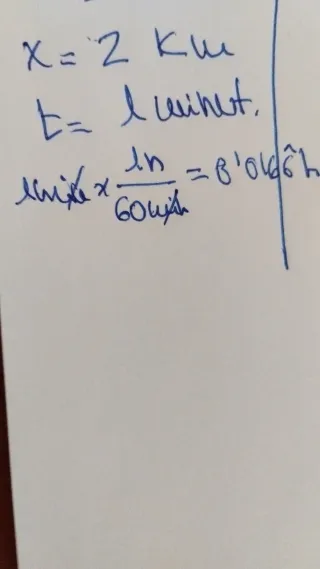 x = 2 Km
t = 1 minut.
1min x 1h/60min = 0'0166̂ h